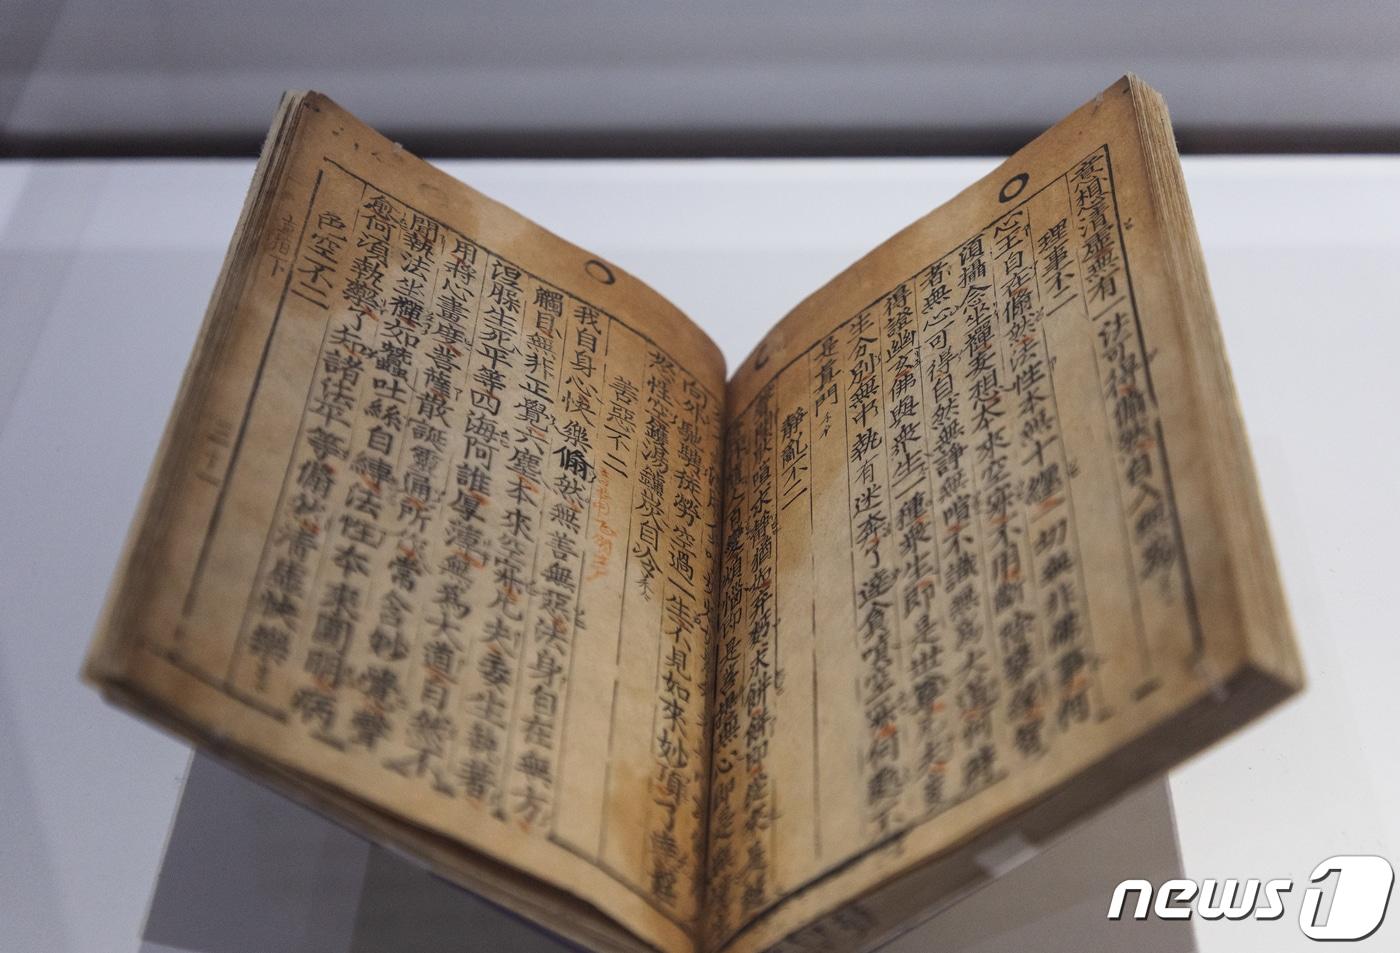 意想清虛無有一法可得翛然自入無爲
理事不二
心王自在翛然法性本無十纏一切無非佛事何
須攝念坐禪妄想本來空寂不用斷除攀緣智
者無心可得自然無諍無喧不識無爲大道何時
得證幽玄佛與衆生一種衆生即是世尊凡夫妄
生分別無中執有迷奔了達貪嗔空寂何處不
是眞門
靜亂不二
喧求靜猶如弃麪求餠餠即從來是麪
人百變煩惱即是菩提無心即是無
向外馳騁疲勞空過一生不見如來妙頂了幸婬
怒性空鑊湯鑪炭自冷
善惡不二
我自身心快樂翛然無善無惡法身自在無方
觸目無非正覺六塵本來空寂凡夫妄生執著
涅槃生死平等四海阿誰厚薄無爲大道自然不
用將心畫度菩薩散誕靈通所作常含妙覺聲
聞執法坐禪如蠶吐絲自縛法性本來圓明病
愈何須執藥了知諸法平等翛然清虛快樂
色空不二
news1